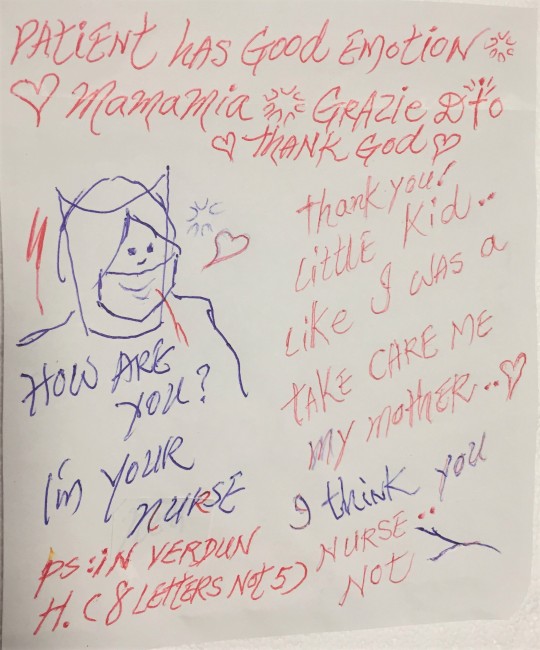 PATIENT HAS GOOD EMOTION
MAMAMIA GRAZIE Dto
THANK GOD
thank you!
LITTLE Kid..
LIKE I WAS a
TAKE CARE ME
MY MOTHER..
HOW ARE
YOU?
I'm YOUR
NURSE
I think you
NURSE..
NOT
PS: IN VERDUN
H. (8 LETTERS NOT 5)